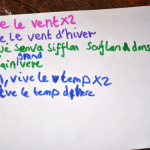 e le vent x2
e, Le vent d'hiver
ué senva sifflan soflan dans
grand
ain vere
, vive le temp x2
ève le temp d vere